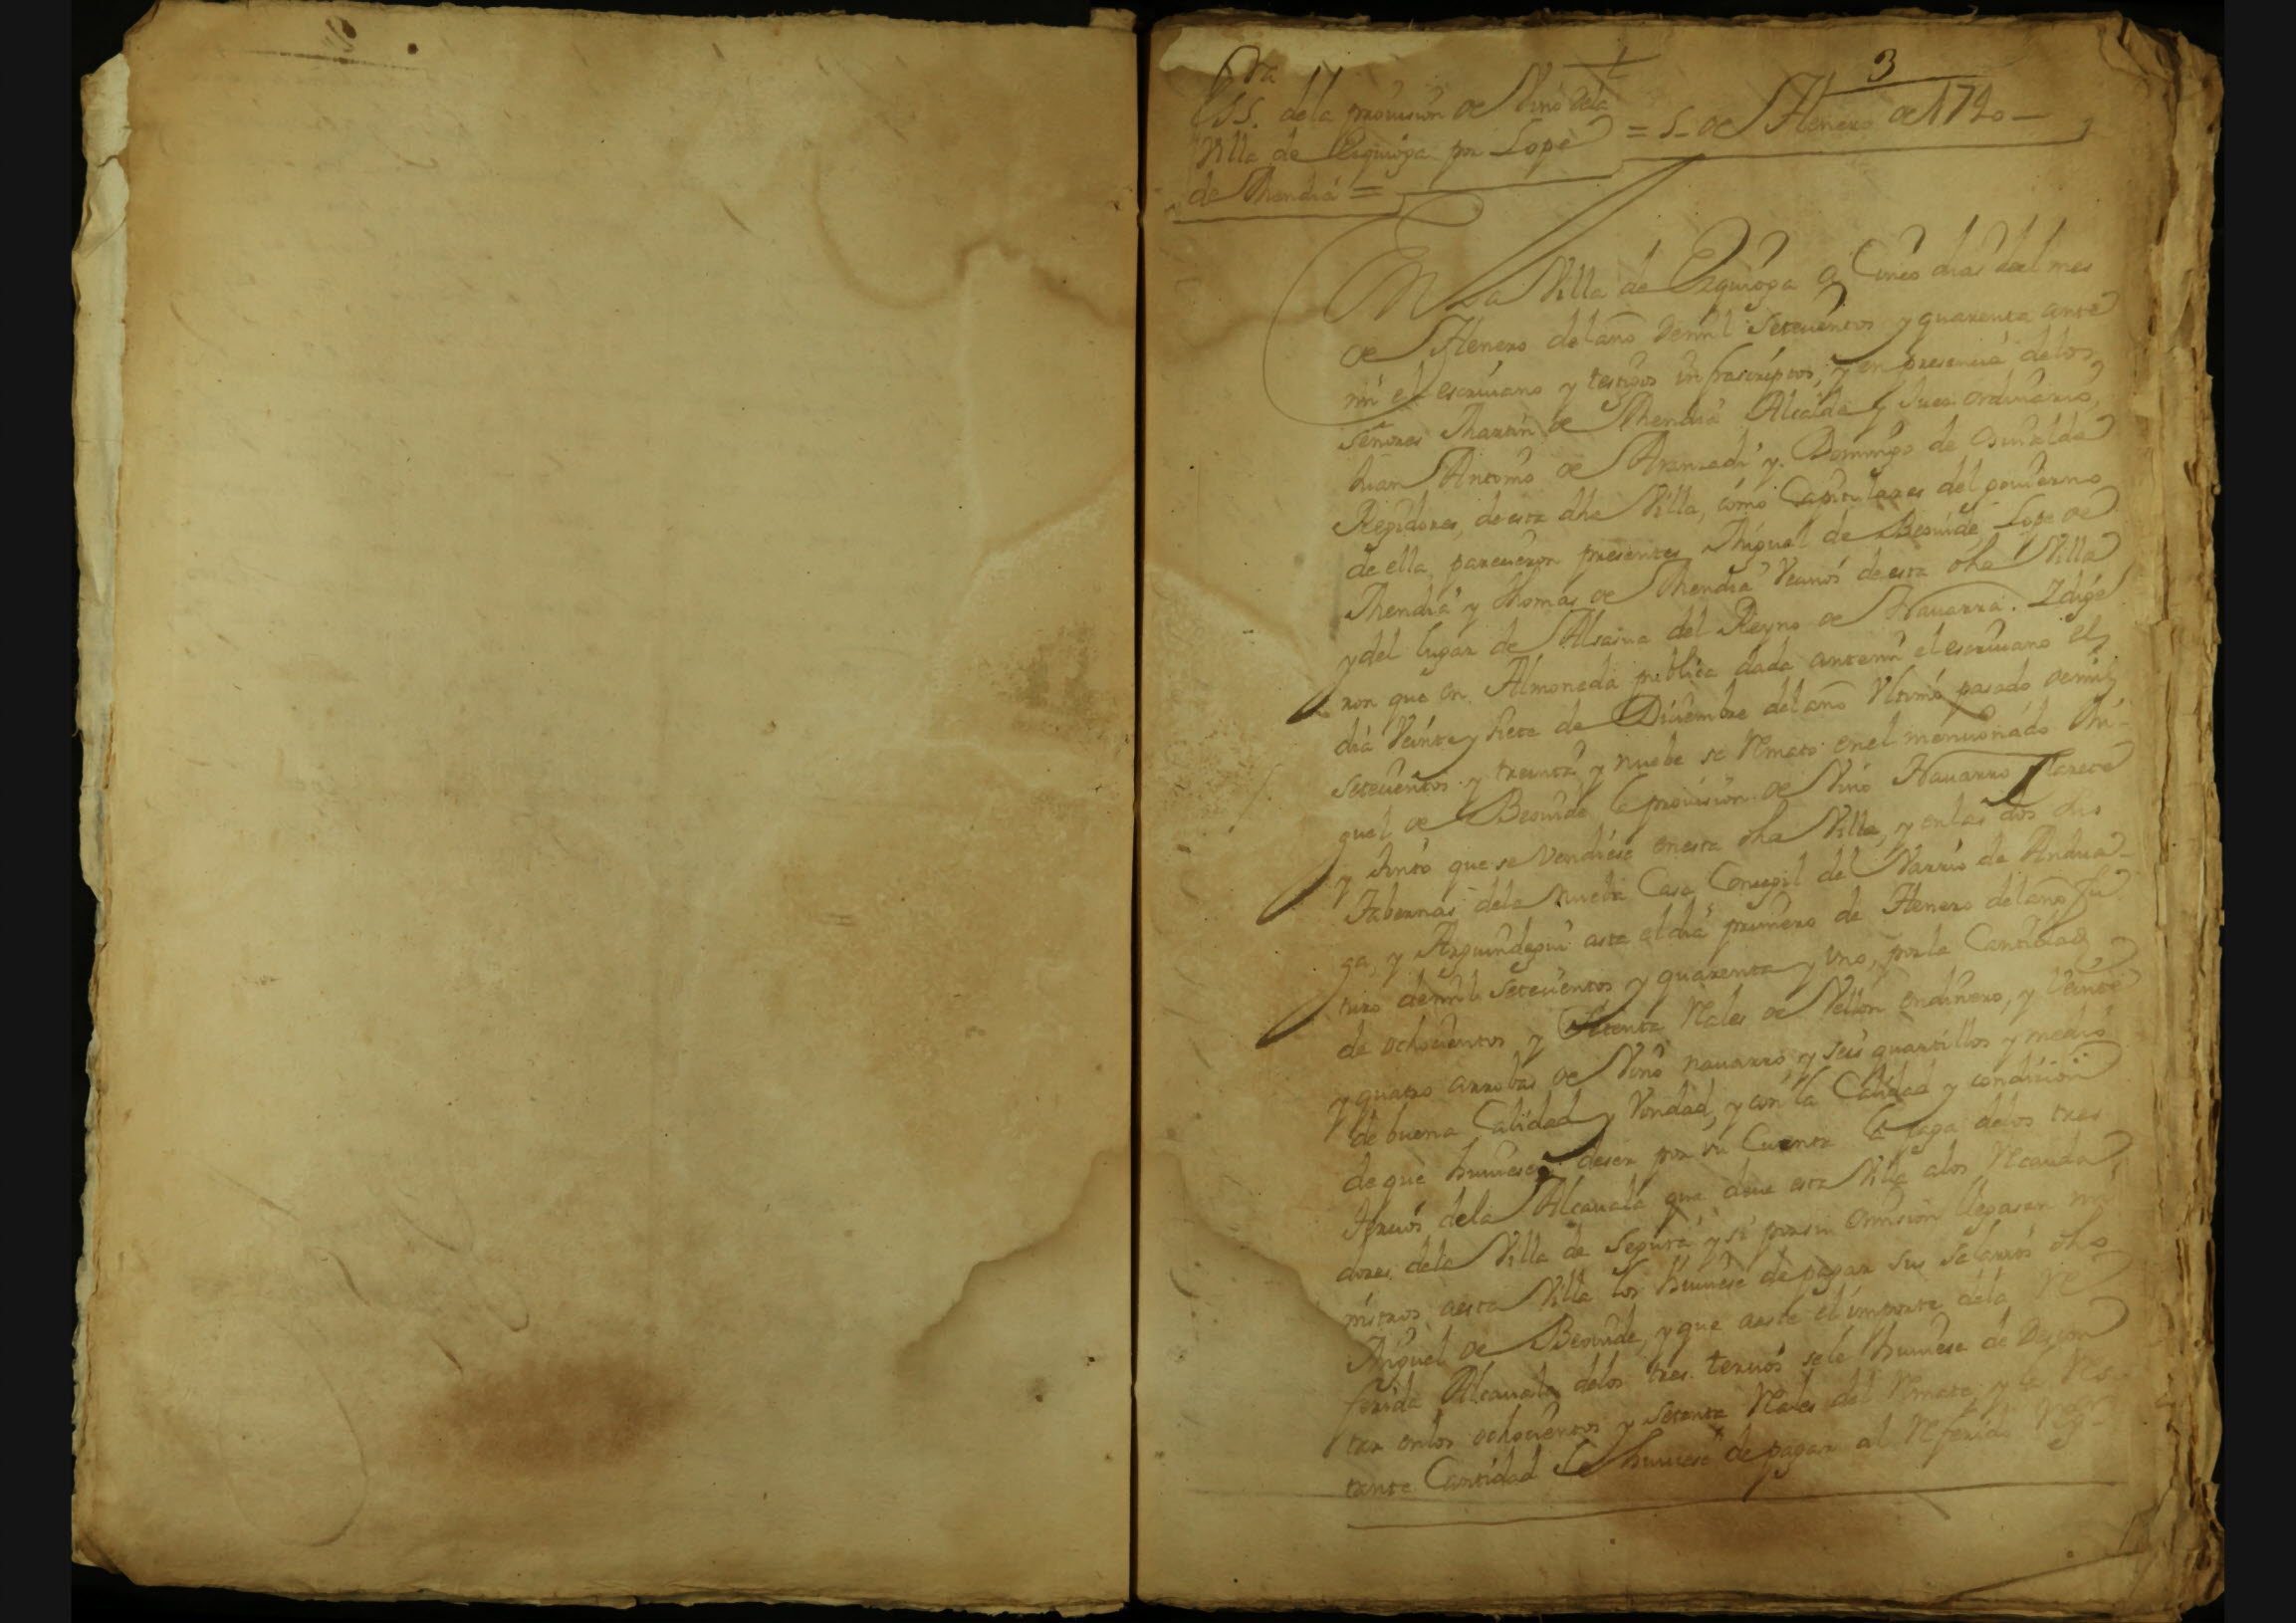 3
Ess.ra dela provision de Vino dela
Villa de Ezquioga por Lope
de Mendia =
= 5 de Henero de 1740 —
En La Villa de Ezquioga a Cinco dias del mes
de Henero del año de mil Setecientos y quarenta ante
mi el escriuano y testigos infrascriptos, y en presencia delos
Señores Martin de Mendia Alcalde y Juez ordinario,
Juan Antonio de Aranzadi y Domingo de
Regidores, de esta dha Villa, como Capitulares del gouierno
de ella, parecieron presentes Miguel de Beouide Lope de
Mendia y Thomas de Mendia Vecinos de esta dha Villa
y del lugar de Alsasua del Reyno de Nauarra. I dije
ron que en Almoneda publica dada ante mi el escriuano el
dia Veinte y siete de Diciembre del año Vltimo pasado de mil
Setecientos y treinta y nuebe se Remato en el mencionado Mi-
guel de Beouide la prouision de Vino Nauarro Clarete
y tinto que se Vendiese en esta dha Villa, y en las dos dhas
Tabernas dela nueba Casa Concegil del Varrio de Andua-
ga, y Arguindegui asta el dia primero de Henero del año fu
turo de mil Setecientos y quarenta y Uno, por la Cantidad
de ochocientos y Setenta Reales de Vellon en dinero, y Veinte
y quatro arrobas de Vino nauarro, y seis quartillos y medio
de buena Calidad y Vondad, y con la Calidad y condicion
de que huuiese de ser por su Cuenta la paga delos tres
tercios dela Alcauala que deue esta Villa alos Recauda
dores dela Villa de Segura, y si por su omision llegasen mi
nistros a esta Villa los huuiese de pagar sus salarios dho
Miguel de Beouide, y que a este el importe dela Re
ferida Alcauala delos tres tercios sele huuiese de Descon
tar en los ochocientos y Setenta Reales del Remate, y la Res-
tante Cantidad la huuiese de pagar al Referido